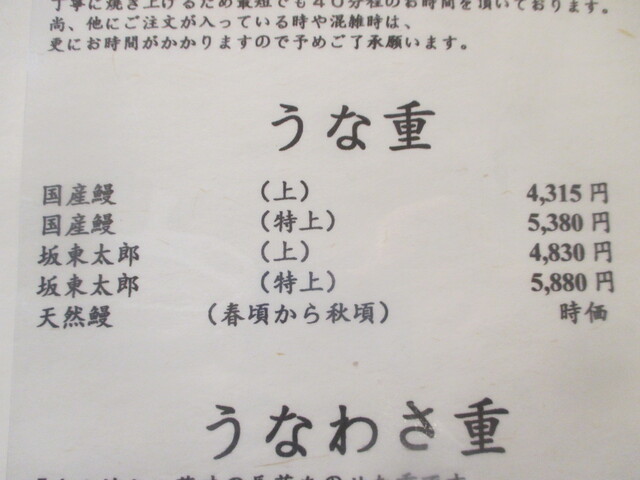 丁寧に焼き上げるため最短でも40分程のお時間を頂いております。
尚、他にご注文が入っている時や混雑時は、
更にお時間がかかりますので予めご了承願います。
うな重
国産鰻 （上） 4,315円
国産鰻 （特上） 5,380円
坂東太郎 （上） 4,830円
坂東太郎 （特上） 5,880円
天然鰻 （春頃から秋頃） 時価
うなわさ重